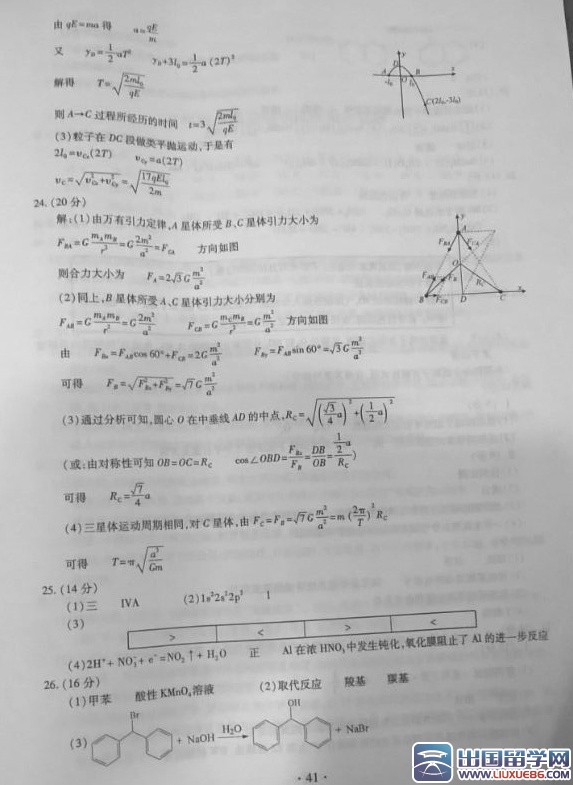 由 qE=ma 得 a=qE/m
又 y_D=1/2 aT² y_D+3l₀=1/2 a(2T)²
解得 T=√(2ml₀/qE)
则 A→C 过程所经历的时间 t=3√(2ml₀/qE)
(3)粒子在 DC 段做类平抛运动,于是有
2l₀=v_Cx(2T) v_Cy=a(2T)
v_C=√(v²_Cx+v²_Cy)=√(17qEl₀/2m)
y
D
A O B x
-l₀ l₀
C(2l₀,-3l₀)
24.(20 分)
解:(1)由万有引力定律,A 星体所受 B、C 星体引力大小为
F_BA=G m_A m_B/r²=G 2m²/a²=F_CA 方向如图
则合力大小为 F_A=2√3 G m²/a²
(2)同上,B 星体所受 A、C 星体引力大小分别为
F_AB=G m_A m_B/r²=G 2m²/a² F_CB=G m_C m_B/r²=G m²/a² 方向如图
由 F_Bx=F_AB cos 60°+F_CB=2G m²/a² F_By=F_AB sin 60°=√3 G m²/a²
可得 F_B=√(F²_Bx+F²_By)=√7 G m²/a²
y
A
F_BA F_CA
O
F_AB F_B R_C
B D C x
F_CB
(3)通过分析可知,圆心 O 在中垂线 AD 的中点,R_C=√((√3/4 a)²+(1/2 a)²)
(或:由对称性可知 OB=OC=R_C cos∠OBD=F_Bx/F_B=DB/OB=(1/2 a)/R_C)
可得 R_C=√7/4 a
(4)三星体运动周期相同,对 C 星体,由 F_C=F_B=√7 G m²/a²=m(2π/T)² R_C
可得 T=π√(a³/Gm)
25.(14 分)
(1)三 IVA (2)1s²2s²2p⁵ 1
(3)
> < > <
(4)2H⁺+NO₃⁻+e⁻=NO₂↑+H₂O 正 Al 在浓 HNO₃ 中发生钝化,氧化膜阻止了 Al 的进一步反应
26.(16 分)
(1)甲苯 酸性 KMnO₄溶液 (2)取代反应 羧基 羰基
(3) Br + NaOH H₂O → OH + NaBr
·41·
出国留学网
www.LIUXUE86.com